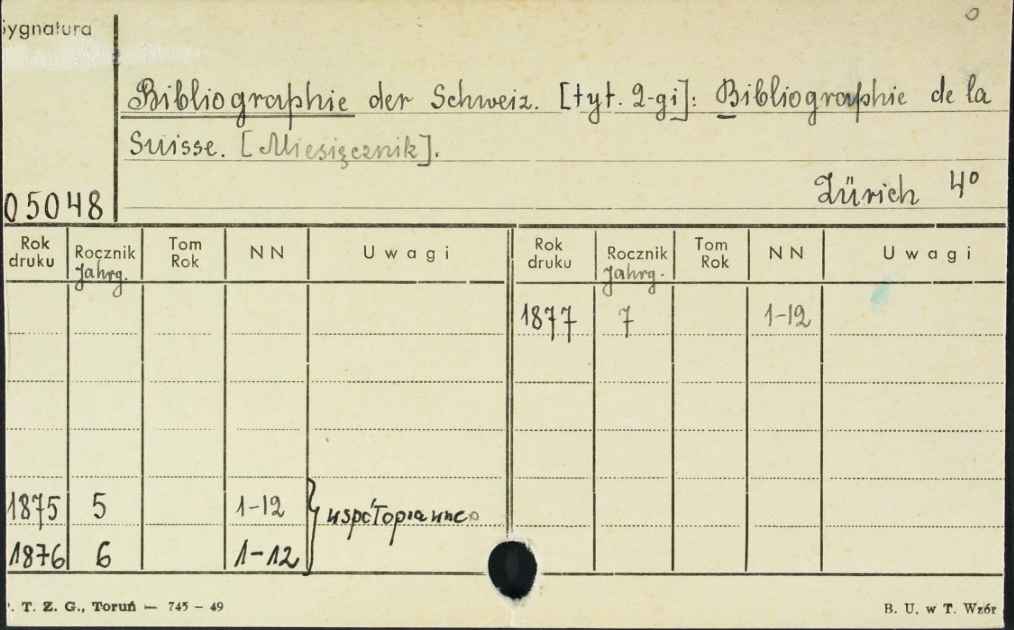 Sygnatura
Bibliographie der Schweiz. [tyt. 2-gi]: Bibliographie de la
Suisse. [Miesięcznik].
05048
Zürich 4°
Rok druku Rocznik Jahrg. Tom Rok NN Uwagi Rok druku Rocznik Jahrg. Tom Rok NN Uwagi
1877 7 1-12
1875 5 1-12
współoprawne
1876 6 1-12
. T. Z. G., Toruń — 745 – 49 B. U. w T. Wzór